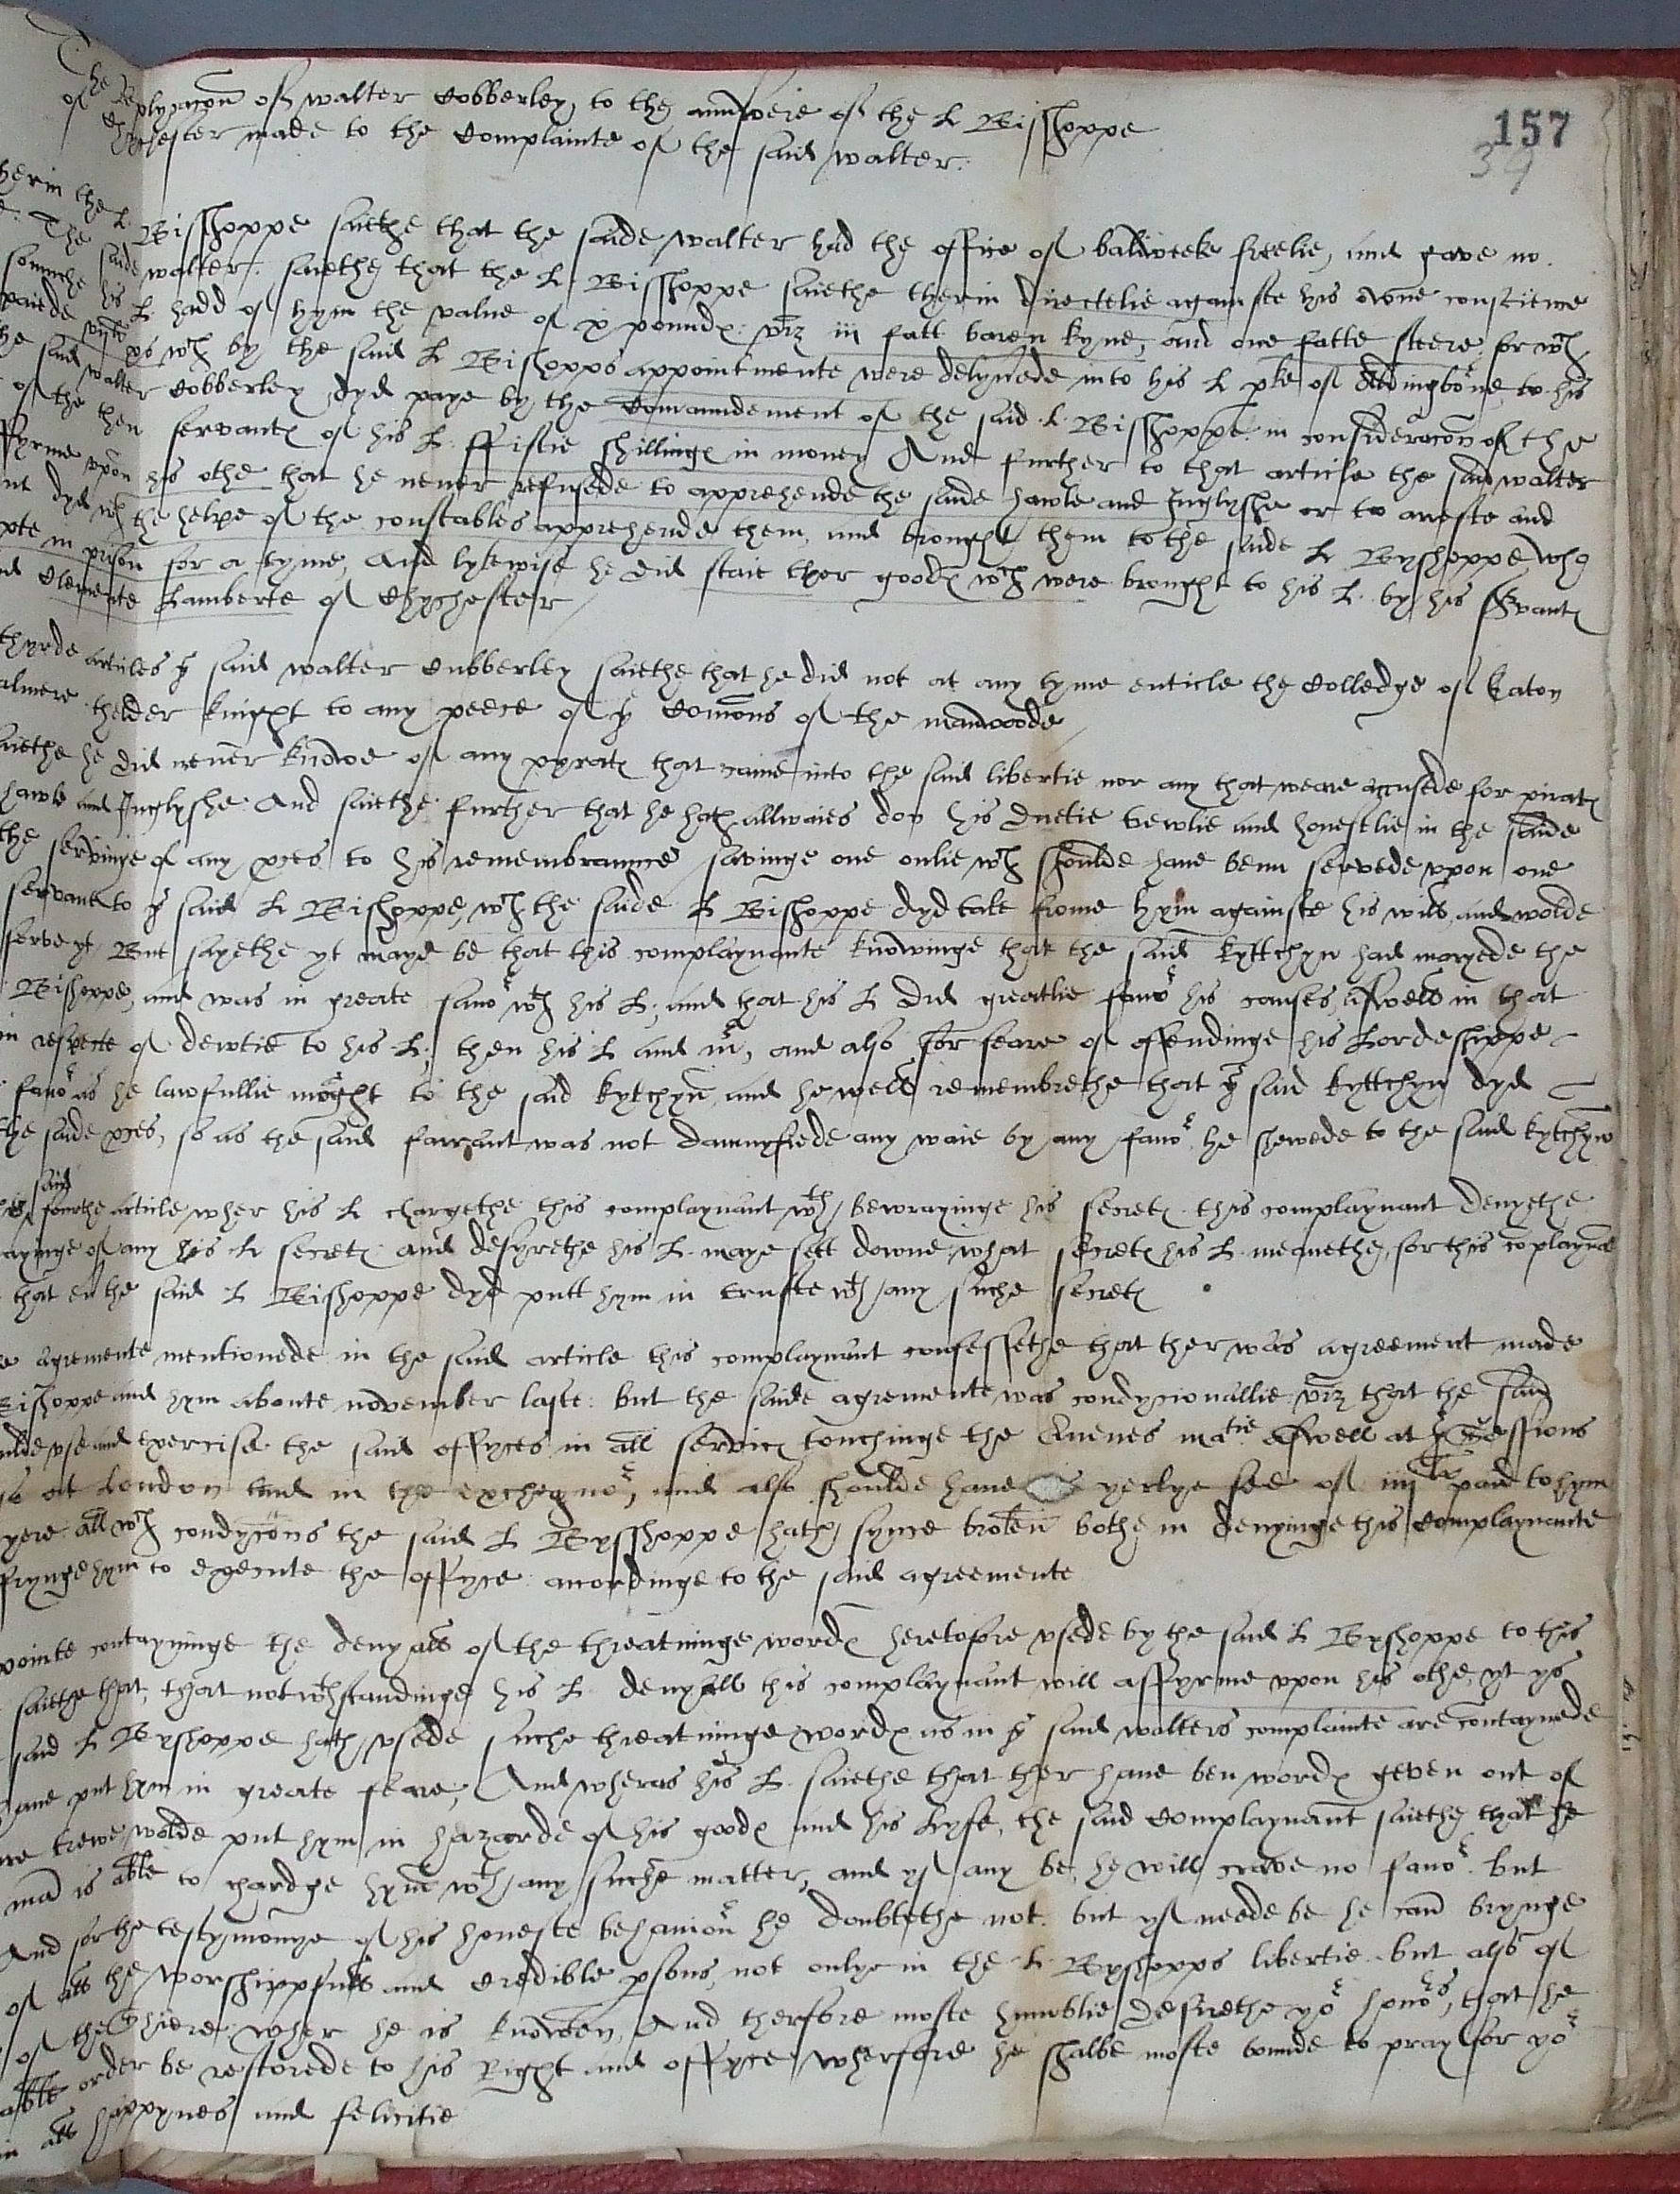 157
39
The Replycacon of walter Cobberley to the answere of the L Bisshoppe
of Chychester made to the Complainte of the said walter.
herin the L Bisshoppe saiethe that the saide walter had the office of baliweeke freelie, and gave no
The said walter saiethe that the L Bisshoppe saiethe therin directelie againste his owne conscience
somuche his L hadd of hym the value of x poundes viz iij fatt baren kyne, and one fatte steere for wch
wch by the said L Bishopps appointmente were delyvede into his L pke of Aldingborne to his
the said walter Cobberley dyd paye by the Comaundement of the said L Bisshoppe in consideracon of the
of the then servantes of his L ffiftie shillinges in money And further to that article the said walter
affyrme upon his othe that he never refusede to apprehende the saide hawle and Inglyshe or to areste and
dyd wth the helpe of the constables apprehende them, and brought them to the saide L Byshoppe who
kepte in prison for a tyme, And lykewise he did staie ther goodes wch were brought to his L by his servantes
and Clemente Lamberte of Chychester
thyrde articles ye said walter Cubberley saiethe that he did not at any tyme enticle the Colledge of Eaton
palmere thelder knight to any peece of ye Comons of the manwoode
saiethe he did never knowe of any pyrates that came into the said libertie nor any that weare accusede for pirates
hawle and Inglyshe And saiethe further that he hath allwaies don his duetie trewlie and honestlie in the saide
the servinge of any pces to his remembraunce savinge one onlie wch shoulde have benn servede upon one
servant to ye said L Bishoppe, wch the saide L Bisshoppe dyd take frome hym againste his will, and wolde
serve yt But sayethe yt maye be that this complaynante knowinge that the said kyttchyn had maryede the
Bishoppe, and was in greate favor wth his L; and that his L did greatlie favor his causes, aswell in that
in respecte of dewtie to his L; then his L and mr, and also for feare of offendinge his Lordeshippe
favor as he lawfullie moght to the said kytchyn and he well remembrethe that ye said kyttchyn dyd
the saide pces, so as the said farrant was not damnyfiede any waie by any favor he shewede to the said kytchyn
said
fourthe article wher his L chargethe this complaynant wth bewrayinge his secretes this complaynant denyethe
bewrayinge of any his L secretes and desyrethe his L maye sett downe what secretes his L meanethe, for this coplaynte
that ev the said L Bishoppe dyd putt hym in truste wth any suche secretes
agremente mentionede in the said article this complaynant confessethe that ther was agreement made
Bishoppe and hym aboute november laste: but the saide agremente was condycionallie viz that the said
use and exercise the said offyces in all services touchinge the Quenes matie aswell at ye Sessions
at London and in the exchequor, and also shoulde have yerlye fee of iiij li paid to hym
yere all wch condycons the said L Bysshoppe hath synce broken bothe in denyinge this Complaynante
suffrynge hym to execute the offyce accordinge to the said agreemente
pointe contayninge the denyall of the threatninge wordes heretofore usede by the said L Byshoppe to this
saiethe that, that notwthstandinge his L denyall this complaynant will affyrme upon his othe, yt ys
said L Byshoppe hath usede suche threatninge wordes as in ye said walters complainte are contaynede
have put hym in greate feare, And wheras his L saiethe that ther have ben wordes geven out of
trewe wolde put hym in hazarde of his goodes and his Lyfe, the said Complaynant saiethe that he
man is able to chardge hym wth any suche matter, and yf any be, he will crave no favor but
And for the testymonye of his honeste behaviour he doubtethe not but yf neede be he can brynge
of all the worshippfull and Credible psons, not onlye in the L Byshopps libertie but also of
of the Shiere wher he is knowen, And therfore moste humblie desirethe yor honors, that he
able order be restorede to his Right and offyce wherfore he shalbe moste bounde to pray for yor
in all happynes and felicitie